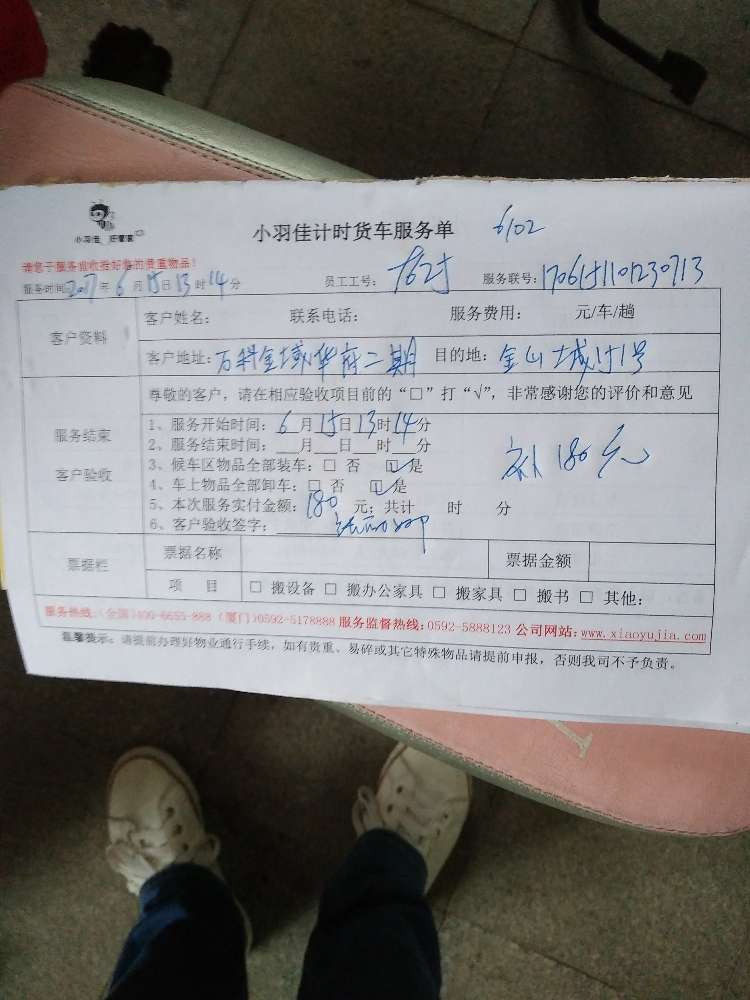 小羽佳 好管家
小羽佳计时货车服务单 6102
请您于服务验收后好您的贵重物品！
服务时间2017年6月15日13时14分 员工工号： 服务联号：1706151101230713
客户资料
客户姓名： 联系电话： 服务费用： 元/车/趟
客户地址：万科金域华府二期 目的地：金山城51号
尊敬的客户，请在相应验收项目前的“□”打“√”，非常感谢您的评价和意见
服务结束
客户验收
1、服务开始时间：6月15日13时14分
2、服务结束时间：___月___日___时___分
3、候车区物品全部装车：□ 否 ☑ 是
4、车上物品全部卸车：□ 否 ☑ 是
5、本次服务实付金额：180元；共计 时 分
6、客户验收签字：
补180元
票据栏
票据名称 票据金额
项 目 □ 搬设备 □ 搬办公家具 □ 搬家具 □ 搬书 □ 其他：
服务热线：(全国)400-6655-888 (厦门)0592-5178888 服务监督热线：0592-5888123 公司网站：www.xiaoyujia.com
温馨提示：请提前办理好物业通行手续，如有贵重、易碎或其它特殊物品请提前申报，否则我司不予负责。